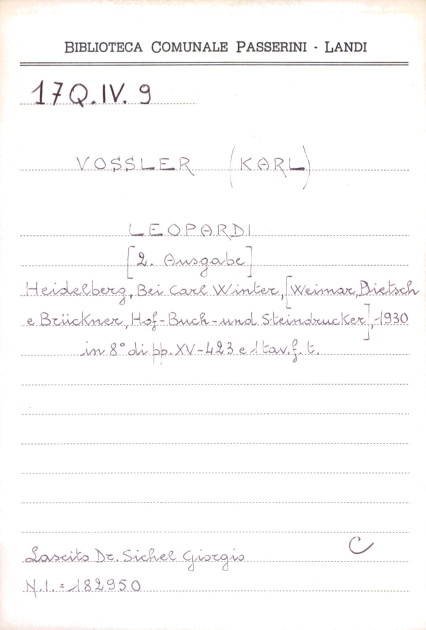 BIBLIOTECA COMUNALE PASSERINI - LANDI
17Q.IV. 9
VOSSLER (KARL)
LEOPARDI
[2. Ausgabe]
Heidelberg, Bei Carl Winter, [Weimar, Dietsch
e Brückner, Hof-Buch-und Steindrucker], 1930
in 8° di pp. XV-423 e 1 tav. f. t.
Lascito Dr. Sichel Giorgio
C
N.I. = 182950